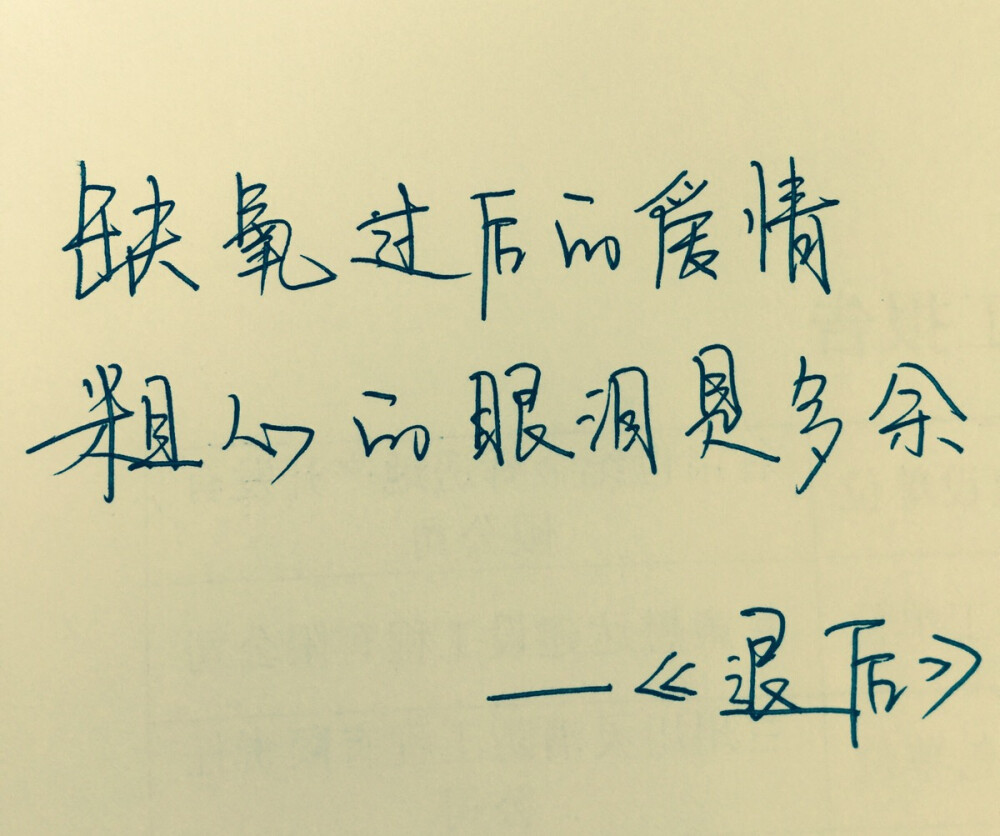 缺氧过后的爱情
粗心的眼泪是多余
——《退后》